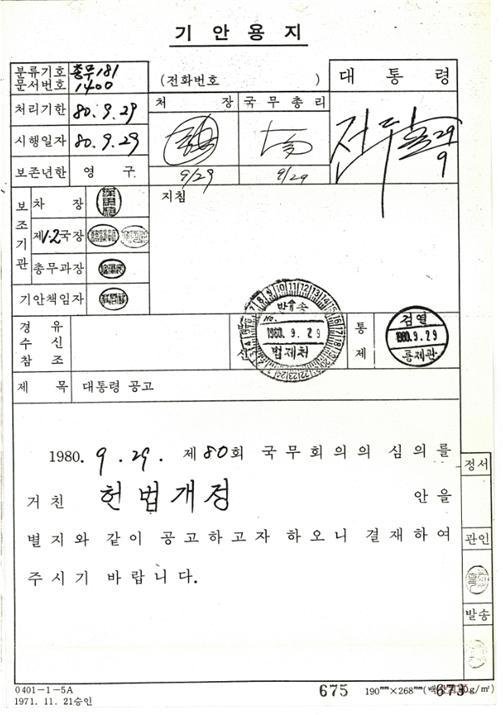 기안용지
분류기호 문서번호 총무181 1400
(전화번호 )
대통령
처리기한 80.9.29
처장 국무총리
시행일자 80.9.29
전두환 29/9
보존년한 영구
9/29 9/29
보조기관
차장
지침
제1·2국장
총무과장
기안책임자
경유 수신 참조
발송 1980.9.29 법제처
통제
검열 1980.9.29 통제관
제목 대통령 공고
1980. 9. 29. 제80회 국무회의의 심의를
거친 헌법개정 안을
별지와 같이 공고하고자 하오니 결재하여
주시기 바랍니다.
정서
관인
발송
0401-1-5A
1971. 11. 21승인
675
190mm×268mm(
673
g/m²)